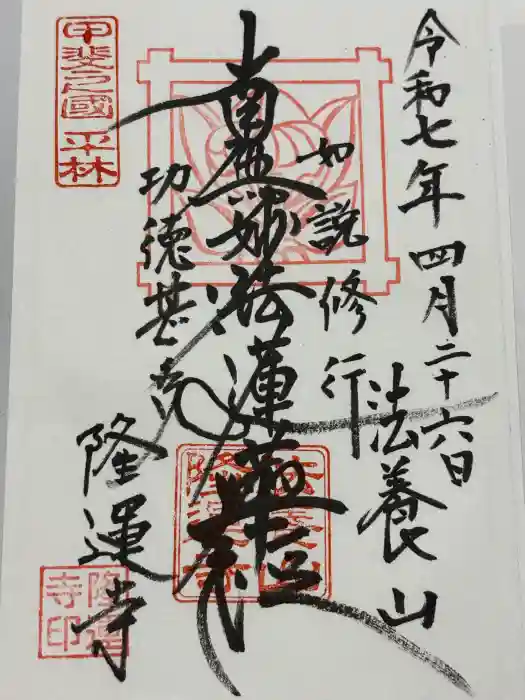 令和七年四月二十六日
法養山
如説修行
南無妙法蓮華経
功徳甚多
隆運寺
甲斐之國 平林
隆運寺印